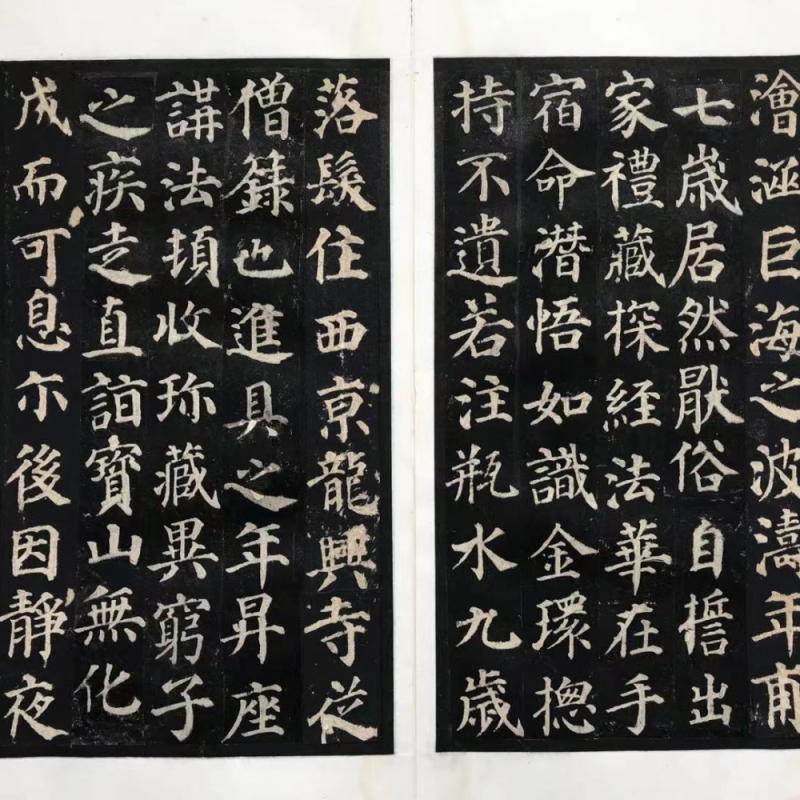 澮涵巨海之波濤年甫
七歲居然猒俗自誓出
家禮藏探經法華在手
宿命潛悟如識金環揔
持不遺若注瓶水九歲
落髮住西亰龍興寺從
僧籙也進具之年昇座
講法頓收珍藏異窮子
之疾走直詣寶山無化
成而可息尒後因靜夜